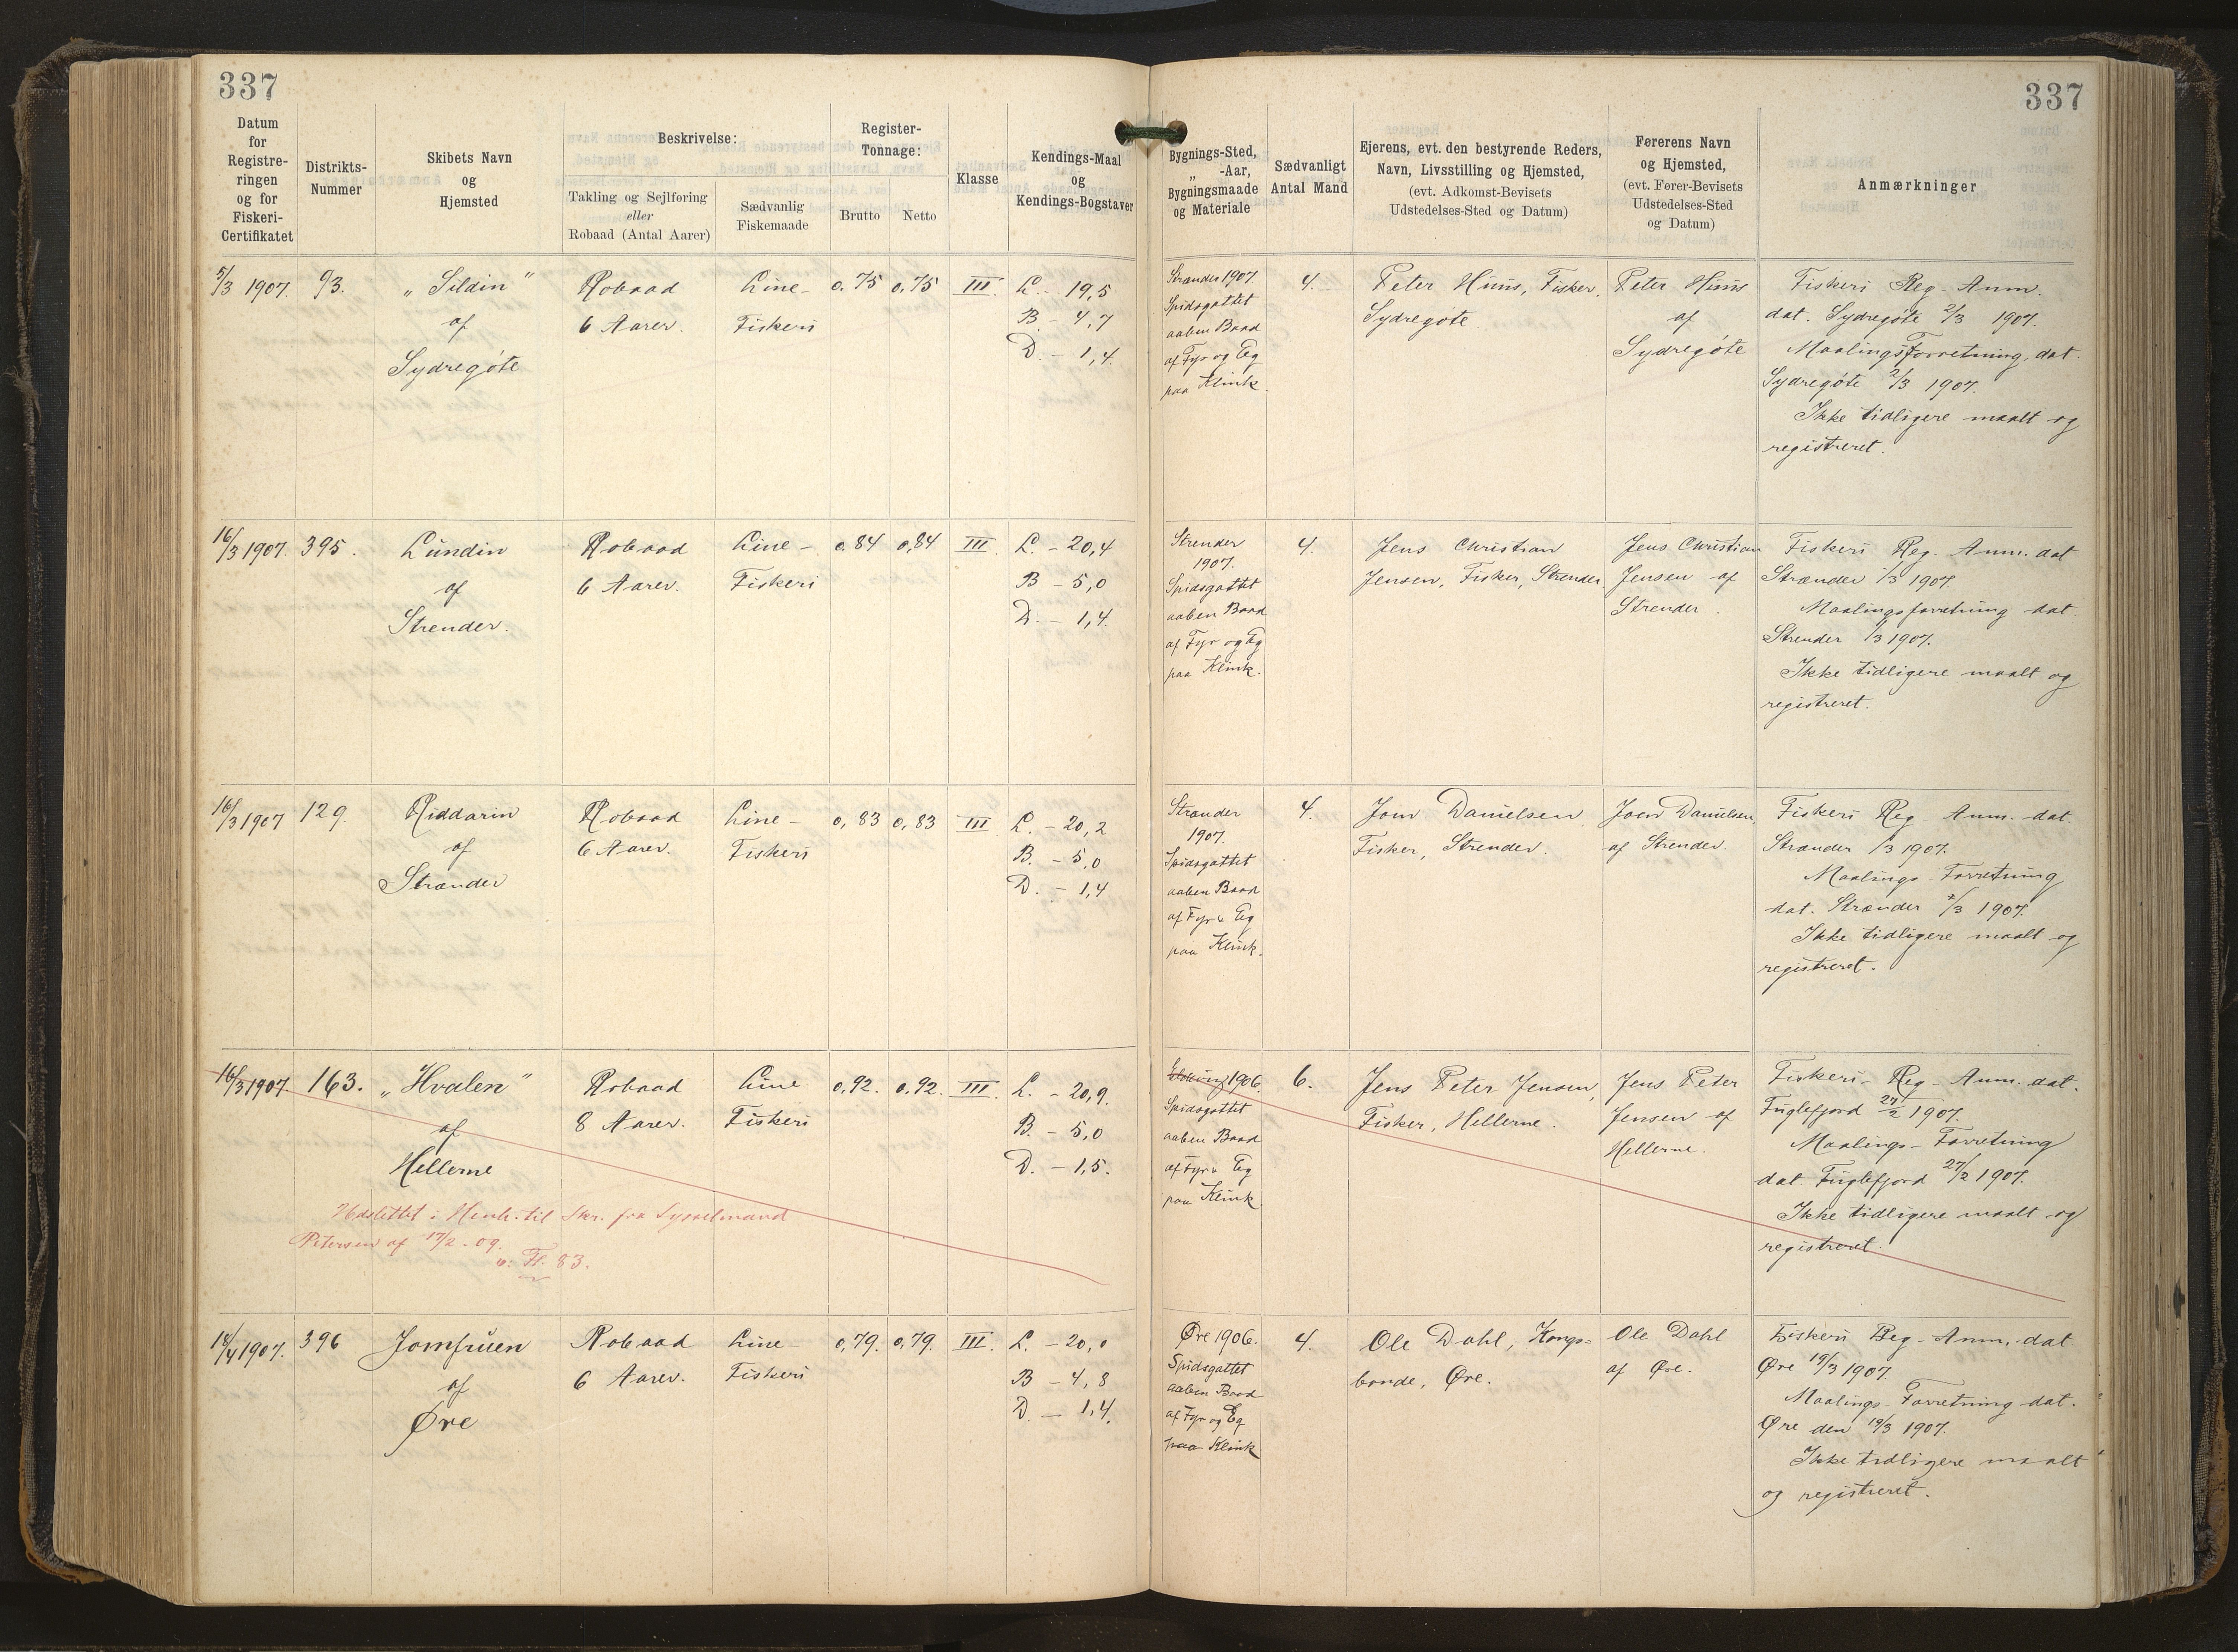 337
337
Datum
for
Registre-
ringen
og for
Fiskeri-
Certifikatet
Distrikts-
Nummer
Skibets Navn
og
Hjemsted
Beskrivelse:
Takling og Sejlføring
eller
Robaad (Antal Aarer)
Sædvanlig
Fiskemaade
Register-
Tonnage:
Brutto
Netto
Klasse
Kendings-Maal
og
Kendings-Bogstaver
Bygnings-Sted,
„ -Aar,
Bygningsmaade
og Materiale
Sædvanligt
Antal Mand
Ejerens, evt. den bestyrende Reders,
Navn, Livsstilling og Hjemsted,
(evt. Adkomst-Bevisets
Udstedelses-Sted og Datum)
Førerens Navn
og Hjemsted,
(evt. Fører-Bevisets
Udstedelses-Sted
og Datum)
Anmærkninger
5/3 1907.
93.
„Sildin"
af
Sydregöte
Robaad
6 Aarer.
Line-
Fiskeri
0.75
0.75
III.
L. - 19,5
B - 4,7
D. - 1,4.
Strender 1907.
Spidsgattet
aaben Baad
af Fyr og Eg
paa Klink.
4.
Peter Húús, Fisker,
Sydregøte
Peter Húús
af
Sydregöte
Fiskeri Reg. Anm.
dat. Sydregöte 2/3 1907.
Maalingsforretning, dat.
Sydregöte 2/3 1907.
Ikke tidligere maalt og
registreret.
16/3 1907.
395.
Lúndin
af
Strender.
Robaad
6 Aarer.
Line-
Fiskeri
0.84
0,84
III
L. - 20,4
B - 5,0
D. - 1,4.
Strender
1907.
Spidsgattet
aaben Baad
af Fyr og Eg
paa Klink.
4.
Jens Christian
Jensen, Fisker, Strender
Jens Christian
Jensen af
Strender.
Fiskeri Reg. Anm. dat
Strænder /3 1907.
Maalingsforretning dat.
Strender /3 1907.
Ikke tidligere maalt og
registreret.
16/3 1907
129.
Riddarin
af
Strænder
Robaad
6 Aarer.
Line-
Fiskeri
0,83
0,83
III
L. - 20,2
B. - 5,0
D. - 1,4
Strænder
1907.
Spidsgattet
aaben Baad
af Fyr & Eg
paa Klink.
4.
Joen Danielsen
Fisker, Strender.
Joen Danielsen,
af Strender.
Fiskeri Reg. Anm. dat.
Strænder /3 1907.
Maalings-Forretning
dat. Strænder /3 1907.
Ikke tidligere maalt og
registreret.
16/3 1907.
163.
„Hvalen"
af
Hellerne
Robaad
8 Aarer.
Line
Fiskeri
0,92.
0.92.
III.
L. - 20,9.
B. - 5,0
D. - 1,5.
1906
Spidsgattet
aaben Baad
af Fyr & Eg
paa Klink.
6.
Jens Peter Jensen,
Fisker, Hellerne.
Jens Peter
Jensen af
Hellerne.
Fiskeri-Reg-Anm. dat.
Fúglefjord 27/2 1907.
Maalings-Forretning
dat Fúglefjord 27/2 1907.
Ikke tidligere maalt og
registreret.
Udslettet i Henh. til Skr. fra Sysselmand
Petersen af 17/2 - 09.
83.
18/4 1907.
396
Jomfrúen
af
Øre
Robaad
6 Aarer.
Line-
Fiskeri
0,79.
0,79.
III.
L. - 20,0
B - 4,8
D. - 1,4.
Øre 1906.
Spidsgattet
aaben Baad
af Fyr og Eg
paa Klink.
4.
Ole Dahl, Kongs-
bonde, Øre.
Ole Dahl
af Øre.
Fiskeri Reg-Anm. dat.
Øre 19/3 1907.
Maalings-Forretning dat.
Øre den 19/3 1907.
Ikke tidligere maalt
og registreret.